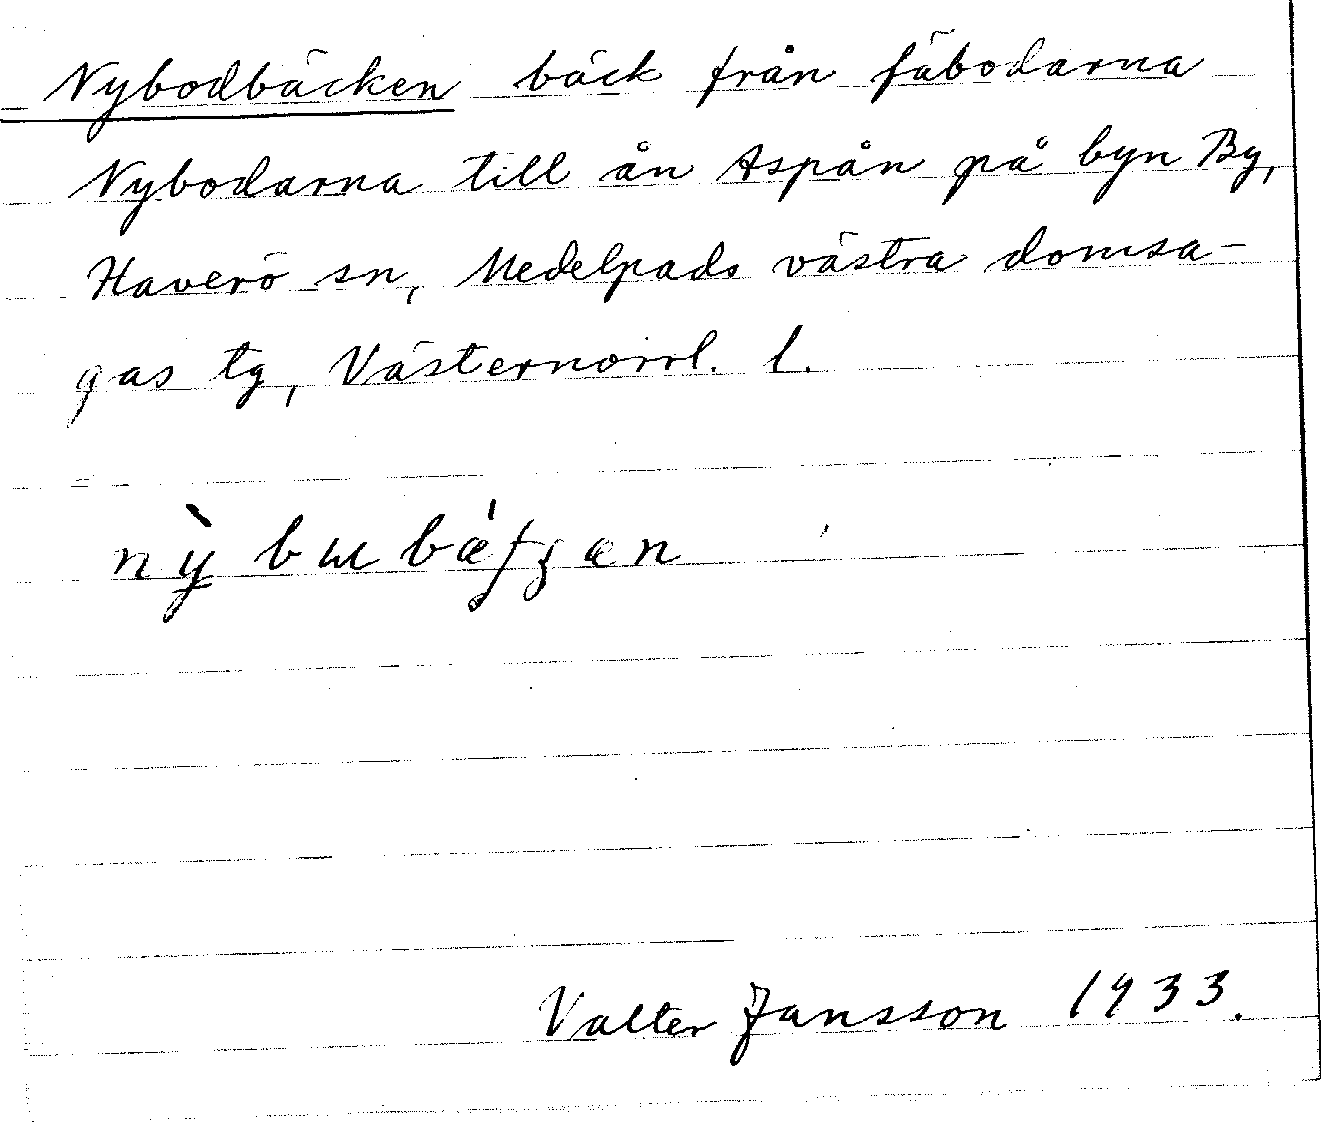 Nybodbäcken bäck från fäbodarna
Nybodarna till ån Aspån på byn By,
Haverö sn, Medelpads västra domsa-
gas tg, Västernorrl. l.
Valter Jansson 1933.